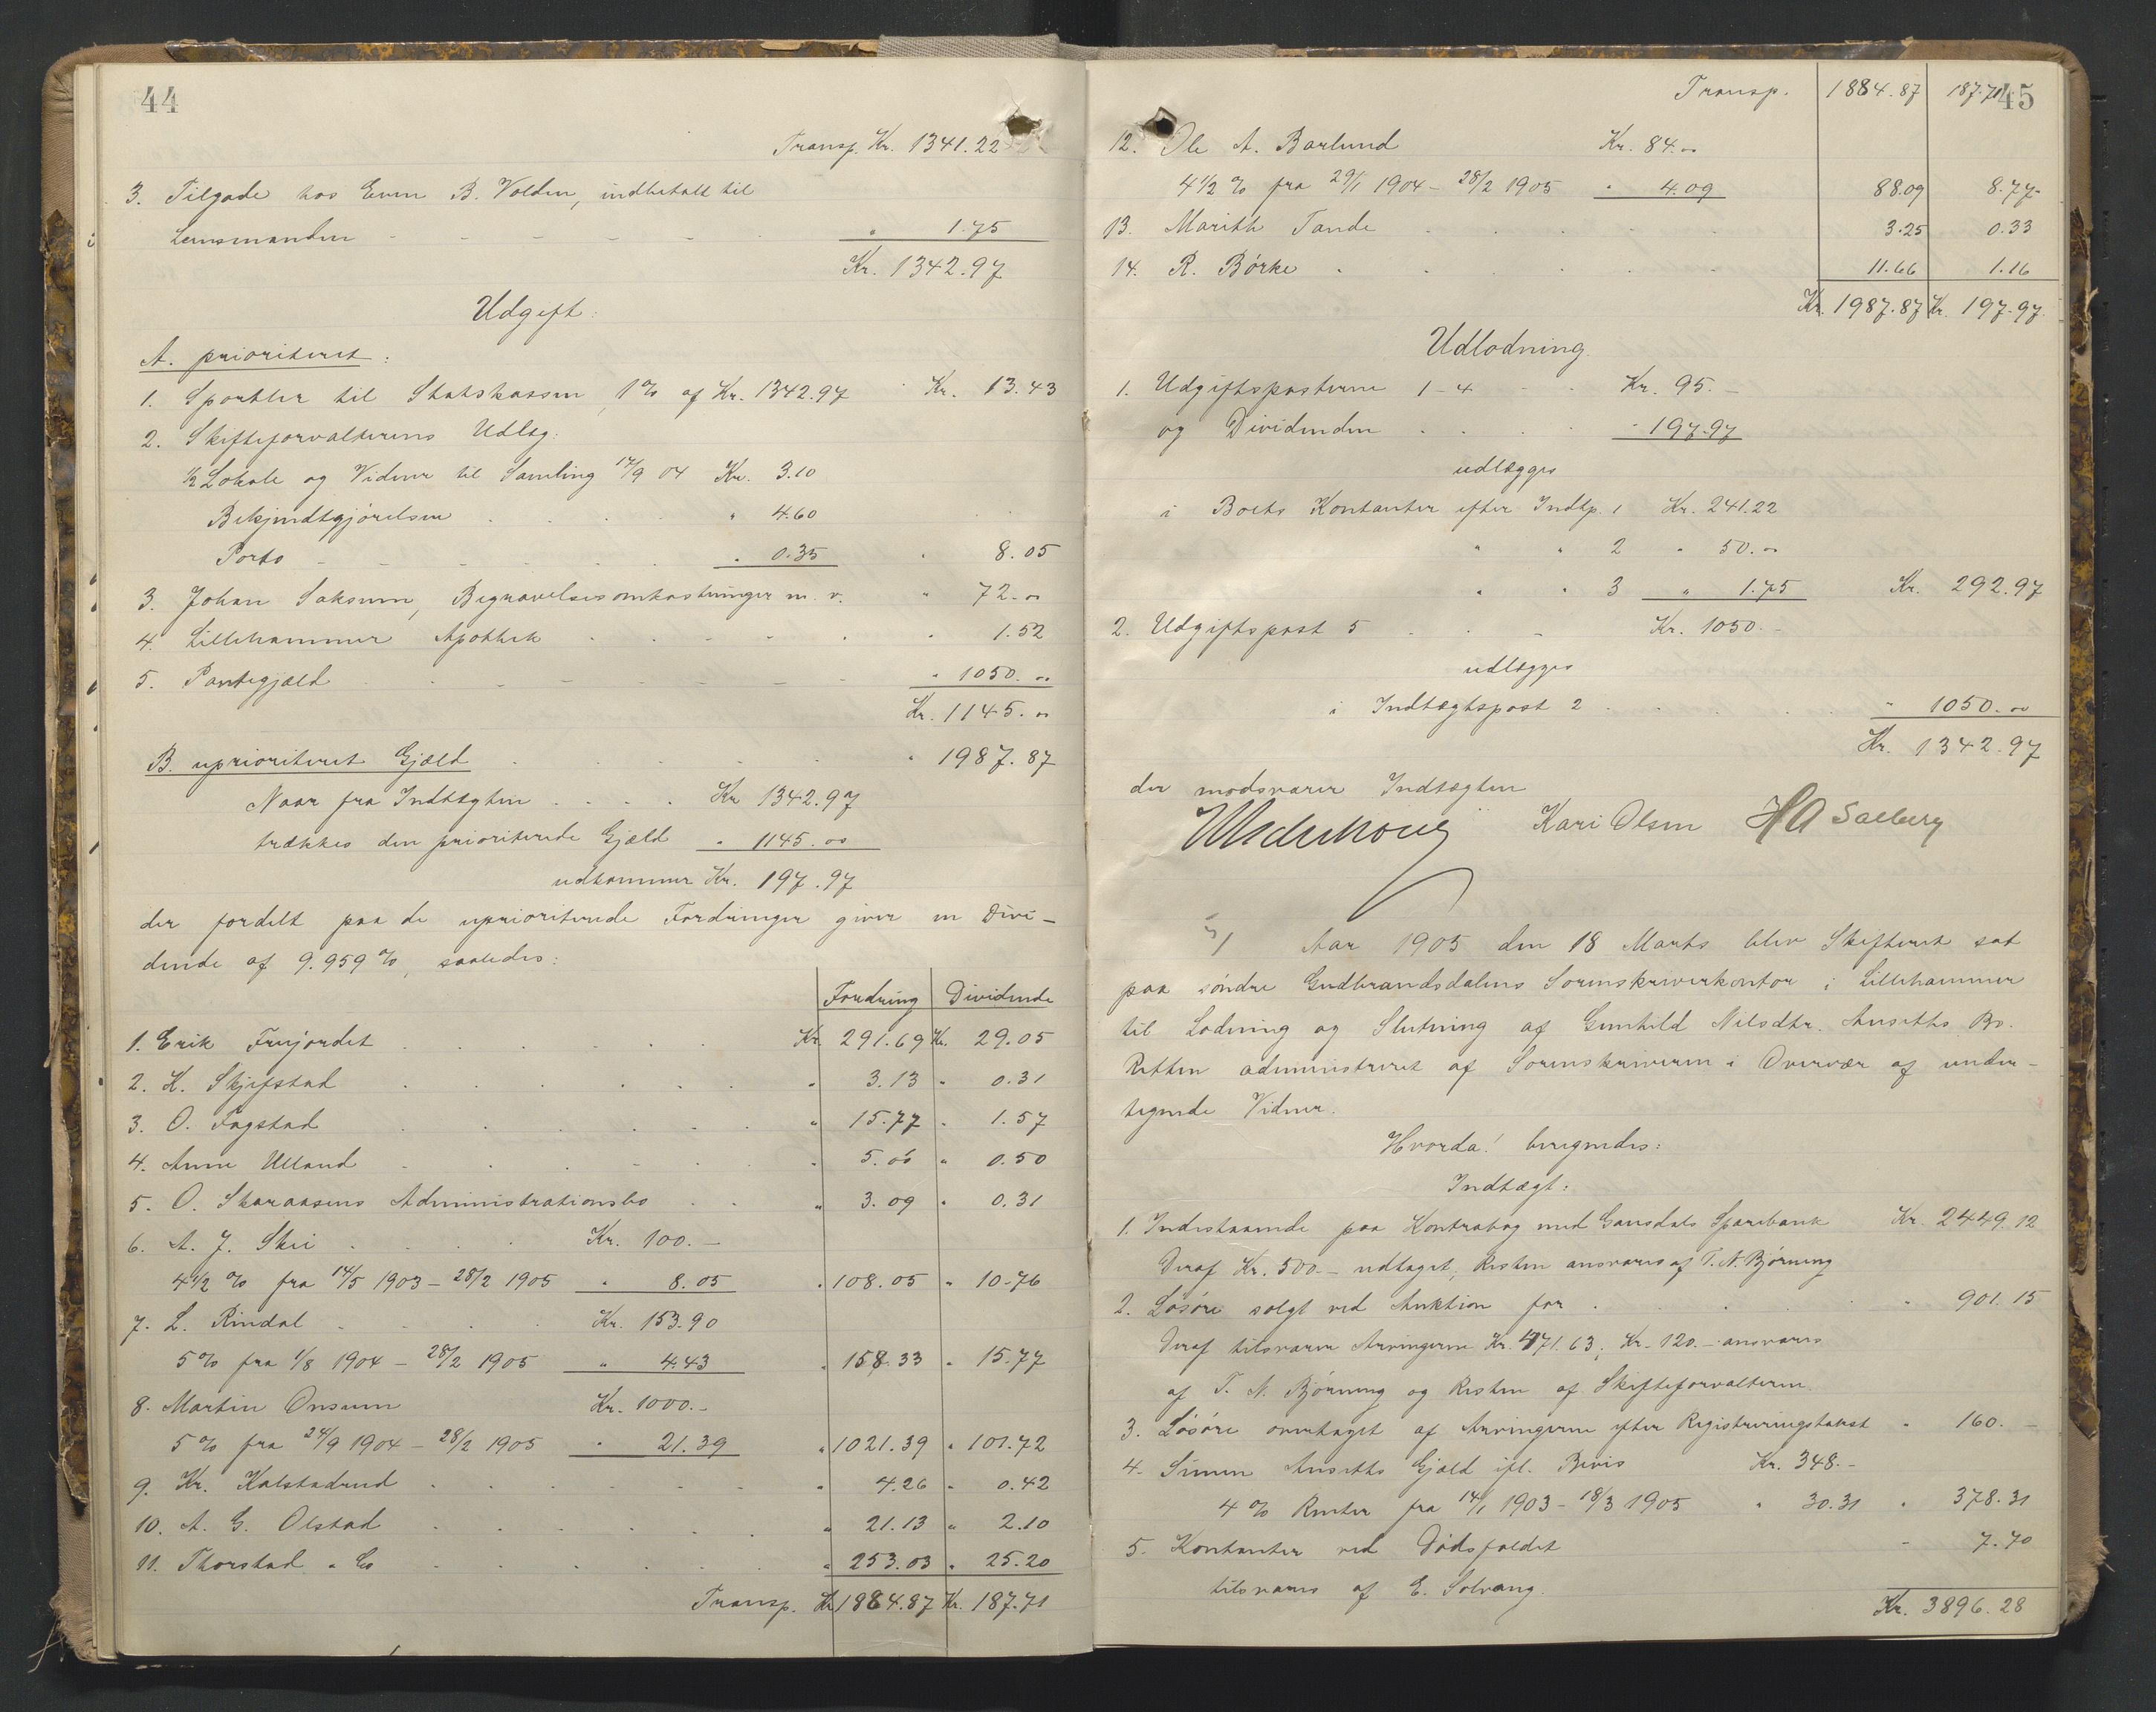 44
Transp. Kr. 1341.22
3. Tilgode hos Even B. Volden, indbetalt til
Lensmanden - - - - - " 1.75
Kr. 1342.97
Udgift:
A. prioriteret:
1. Sportler til Statskassen, 1% af Kr. 1342.97 Kr. 13.43
2. Skifteforvalterens Udlæg:
1/2 Lokale og Vidner til Samling 17/9 04 Kr. 3.10
Bekjendtgjørelsen . . . . " 4.60
Porto - - - - . . " 0.35 " 8.05
3. Johan Saksum, Begravelsesomkostninger m. v. " 72.00
4. Lillehammer Apothek . . . . " 1.52
5. Pantegjæld . . . . " 1050.00
Kr. 1145.00
B. uprioriteret Gjæld . . . . " 1987.87
Naar fra Indtægten . . . . Kr 1342.97
trækkes den prioriterede Gjæld " 1145.00
udkommer Kr. 197.97
der fordelt paa de uprioriterede Fordringer giver en Divi-
dende af 9.959%, saaledes:
Fordring Dividende
1. Erik Frujordet . . . . Kr. 291.69 Kr. 29.05
2. K. Skjefstad . . . . " 3.13 " 0.31
3. O. Fagstad . . . . " 15.77 " 1.57
4. Anne Ulland . . . . " 5.00 " 0.50
5. O. Skaraasens Administrationsbo . . " 3.09 " 0.31
6. A. J. Skei . . . . Kr. 100.-
4 1/2 % fra 14/5 1903 - 28/2 1905 " 8.05 " 108.05 " 10.76
7. L. Rindal . . . . Kr. 153.90
5% fra 1/8 1904 - 28/2 1905 " 4.43 " 158.33 " 15.77
8. Martin Onsum Kr. 1000.-
5% fra 24/9 1904 - 28/2 1905 " 21.39 " 1021.39 " 101.72
9. Kr. Kalstadrud . . . . " 4.26 " 0.42
10. A. G. Olstad . . . . " 21.13 " 2.10
11. Thorstad & Co . . . . " 253.03 " 25.20
Transp. Kr 1884.87 Kr. 187.71
45
Transp. 1884.87 187.71
12. Ole A. Barlund Kr. 84.00
4 1/2 % fra 29/1 1904 - 28/2 1905 " 4.09 88.09 8.77
13. Marith Tande . . . . 3.25 0.33
14. R. Børke . . . . 11.66 1.16
Kr. 1987.87 Kr. 197.97
Udlodning
1. Udgiftsposterne 1-4 - . Kr. 95.-
og Dividenden . . . . " 197.97
udlægges
i Boets Kontanter efter Indtp. 1 Kr. 241.22
" " 2 " 50.00
" " 3 " 1.75 Kr. 292.97
2. Udgiftspost 5 . . - Kr. 1050.-
udlægges
i Indtægtspost 2 . . . . " 1050.00
Kr. 1342.97
der modsvarer Indtægten
Kari Olsen HA Salberg
Aar 1905 den 18 Marts blev Skifteret sat
paa søndre Gudbrandsdalens Sorenskriverkontor i Lillehammer
til Lodning og Slutning af Gunhild Nilsdtr. Anseths Bo.
Retten administreret af Sorenskriveren i Overvær af under-
tegnede Vidner.
Hvorda! beregnedes:
Indtægt:
1. Indestaaende paa Kontrabog med Gausdals Sparebank Kr. 2449.12
Deraf Kr. 500.- udtaget, Resten ansvares af T. N. Bjørning
2. Løsøre solgt ved Auktion for . . . . " 901.15
Deraf tilsvarer Arvingerne Kr. 471.63, Kr. 120.- ansvares
af T. N. Bjørning og Resten af Skifteforvalteren.
3. Løsøre overtaget af Arvingerne efter Registreringstakst " 160.-
4. Simen Anseths Gjæld ifl. Bevis Kr. 348.-
4 % Renter fra 14/1 1903 - 18/3 1905 " 30.31 " 378.31
5. Kontanter ved Dødsfaldet - 7.70
tilsvares af E. Solvang.
Kr. 3896.28